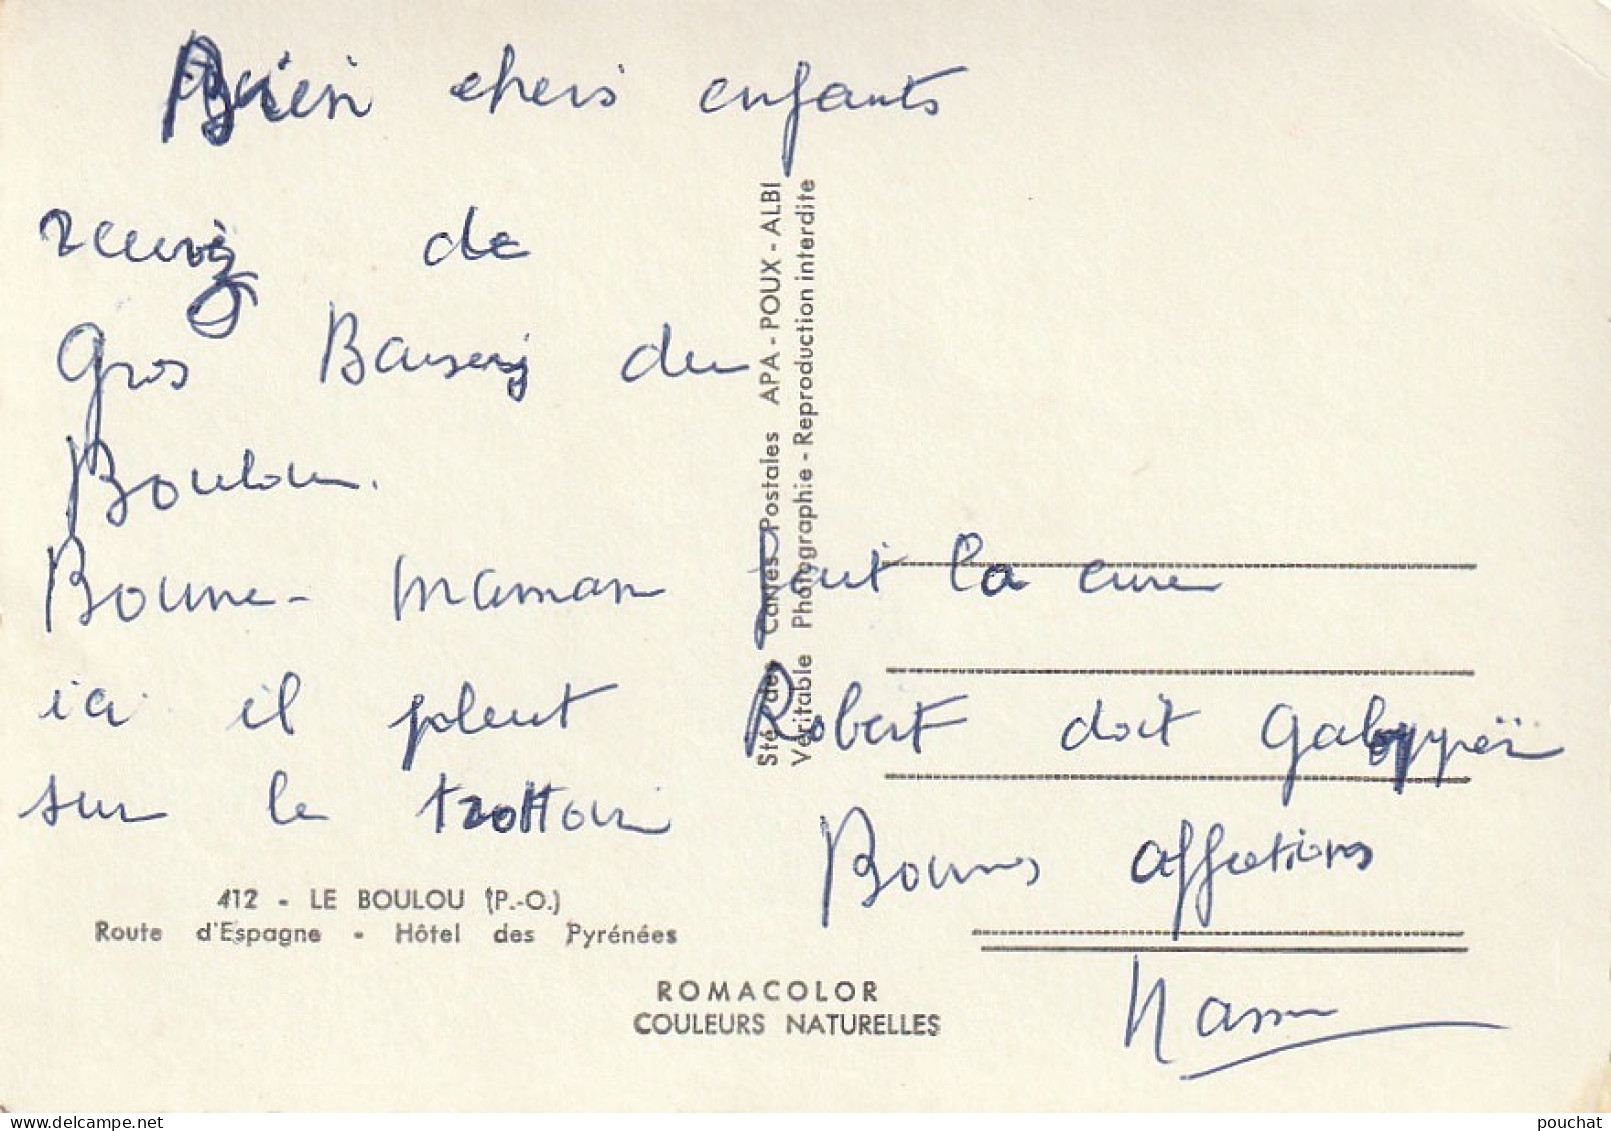 Bien chers enfants
recevez de
Gros Baisers du
Boulou.
Bonne-maman fait la cure
ici il pleut Robert doit galopper
sur le trottoir
Bonnes affections
412 - LE BOULOU (P.-O.)
Route d'Espagne - Hôtel des Pyrénées
ROMACOLOR
COULEURS NATURELLES
Sté des Cartes Postales APA - POUX - ALBI
Véritable Photographie - Reproduction interdite
pouchat